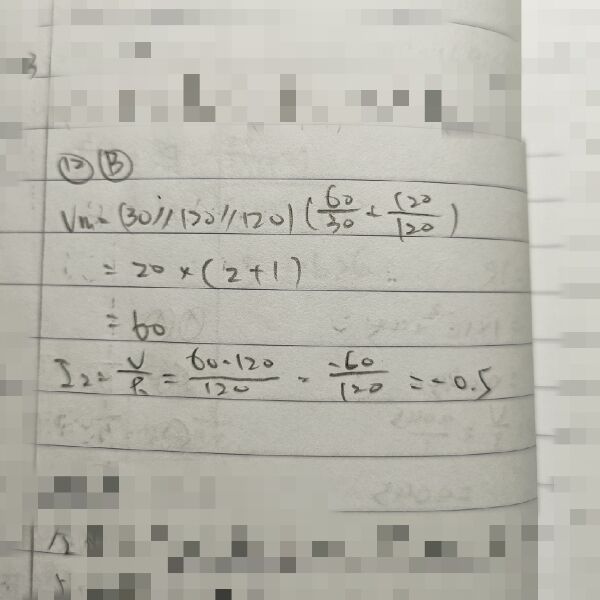 ⑫ Ⓑ
Vm = (30 // 120 // 120) (60/30 + 120/120)
= 20 × (2+1)
= 60
I2 = V/R = 60-120/120 = -60/120 = -0.5